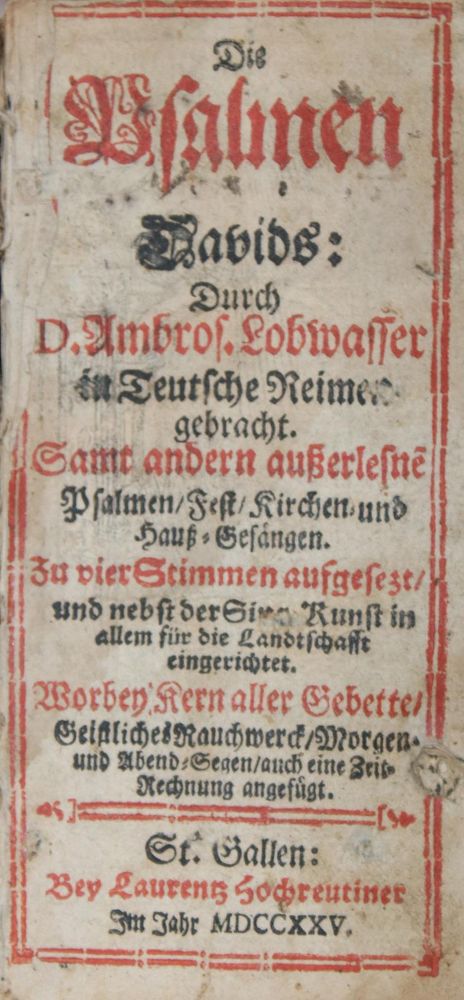 Die
Psalmen
Davids:
Durch
D. Ambros. Lobwasser
in Teutsche Reimen
gebracht.
Samt andern außerlesnē
Psalmen/Fest/Kirchen-und
Hauß-Gesängen.
Zu vier Stimmen aufgesezt/
und nebst der Sing Kunst in
allem für die Landtschafft
eingerichtet.
Worbey Kern aller Gebette/
Geistliches Rauchwerck/Morgen-
und Abend-Segen/auch eine Zeit-
Rechnung angefügt.
St. Gallen:
Bey Laurentz Hochreutiner
Im Jahr MDCCXXV.